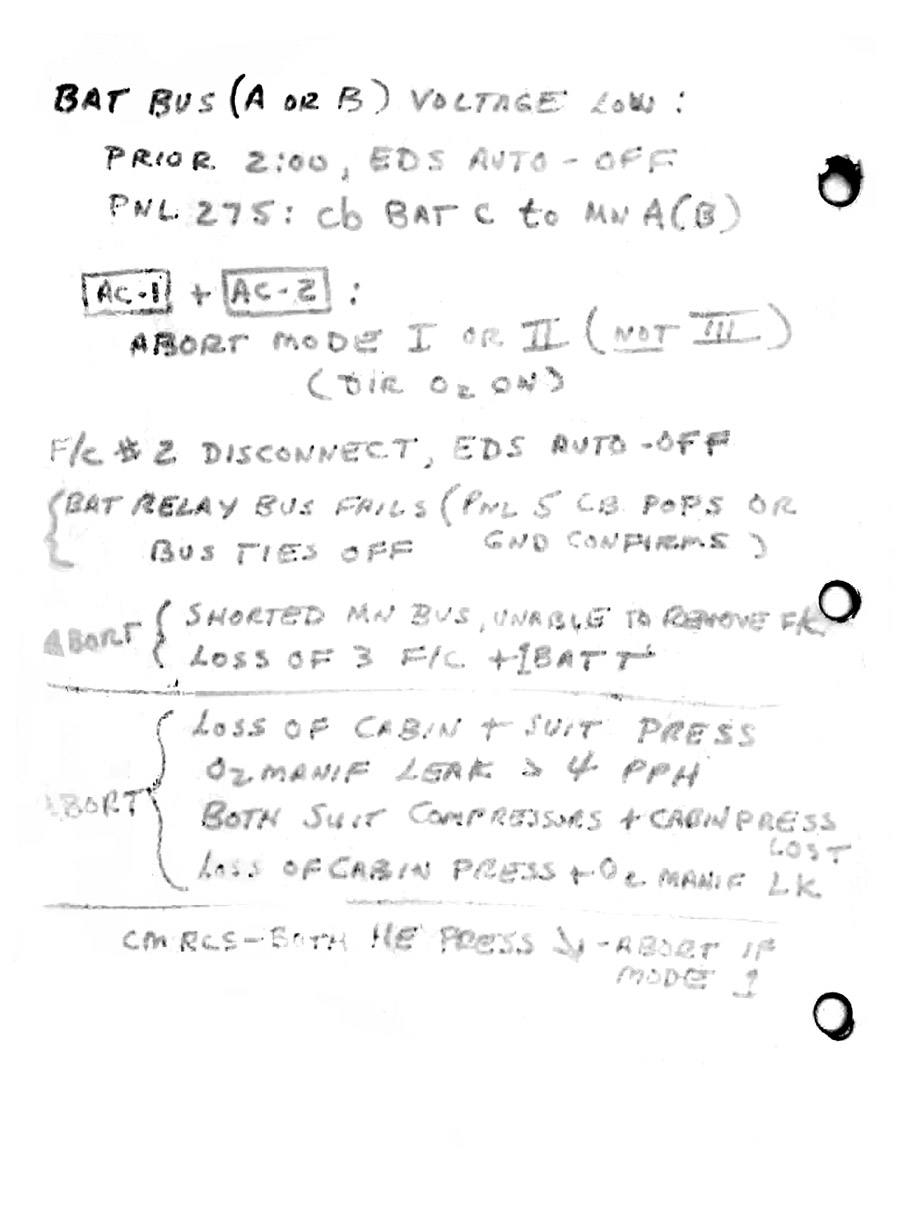 BAT BUS (A OR B) VOLTAGE LOW:
PRIOR 2:00, EDS AUTO - OFF
PNL 275: cb BAT C to MN A(B)
AC-1 + AC-2 :
ABORT MODE I OR II (NOT III)
(DIR O2 ON)
F/C # 2 DISCONNECT, EDS AUTO - OFF
BAT RELAY BUS FAILS (PNL 5 CB POPS OR
BUS TIES OFF GND CONFIRMS)
ABORT { SHORTED MN BUS, UNABLE TO REMOVE F/C
LOSS OF 3 F/C + 1 BATT
ABORT { LOSS OF CABIN + SUIT PRESS
O2 MANIF LEAK > 4 PPH
BOTH SUIT COMPRESSORS + CABIN PRESS
LOST
LOSS OF CABIN PRESS + O2 MANIF LK
CM RCS - BOTH HE PRESS ↓ - ABORT IF
MODE I